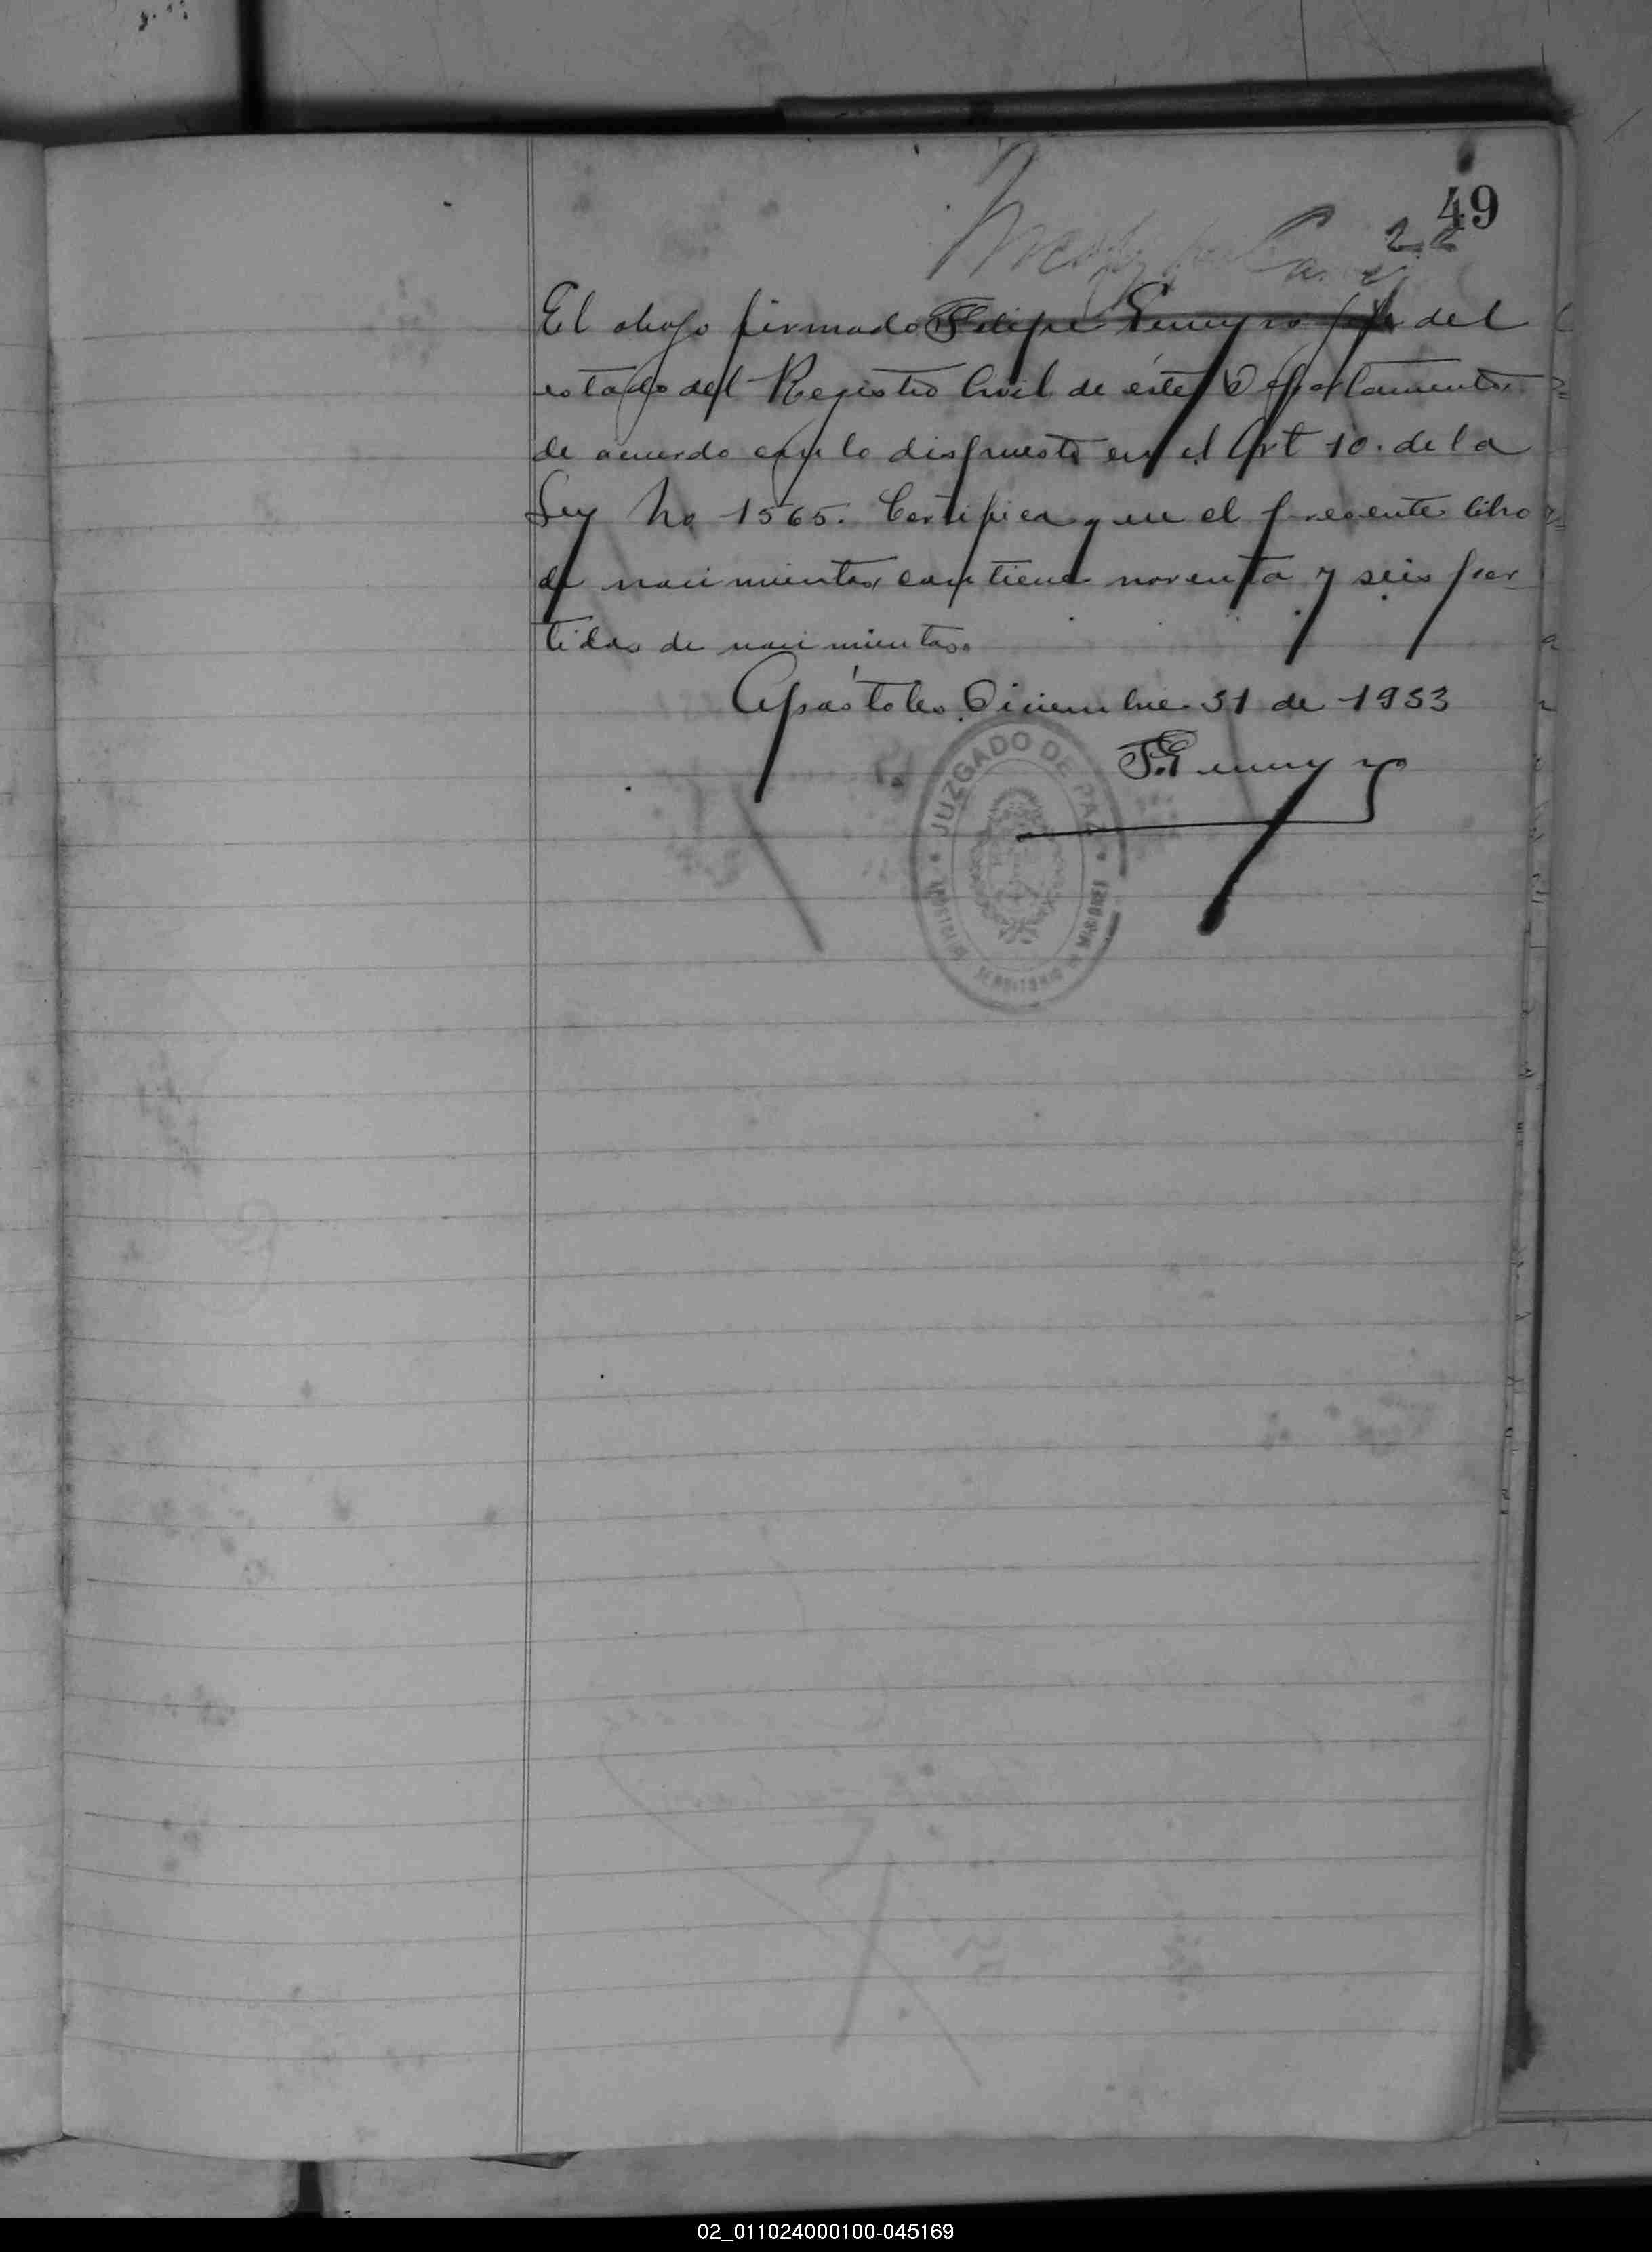 49
El abajo firmado Felipe jefe del
estado del Registro Civil de éste Departamento
de acuerdo con lo dispuesto en el Art 10. de la
Ley No 1565. Certifica que el presente libro
de nacimientos contiene noventa y seis par
tidas de nacimientos.
Apóstoles Diciembre 31 de 1933
JUZGADO DE PAZ
TERRITORIO DE MISIONES
02_011024000100-045169